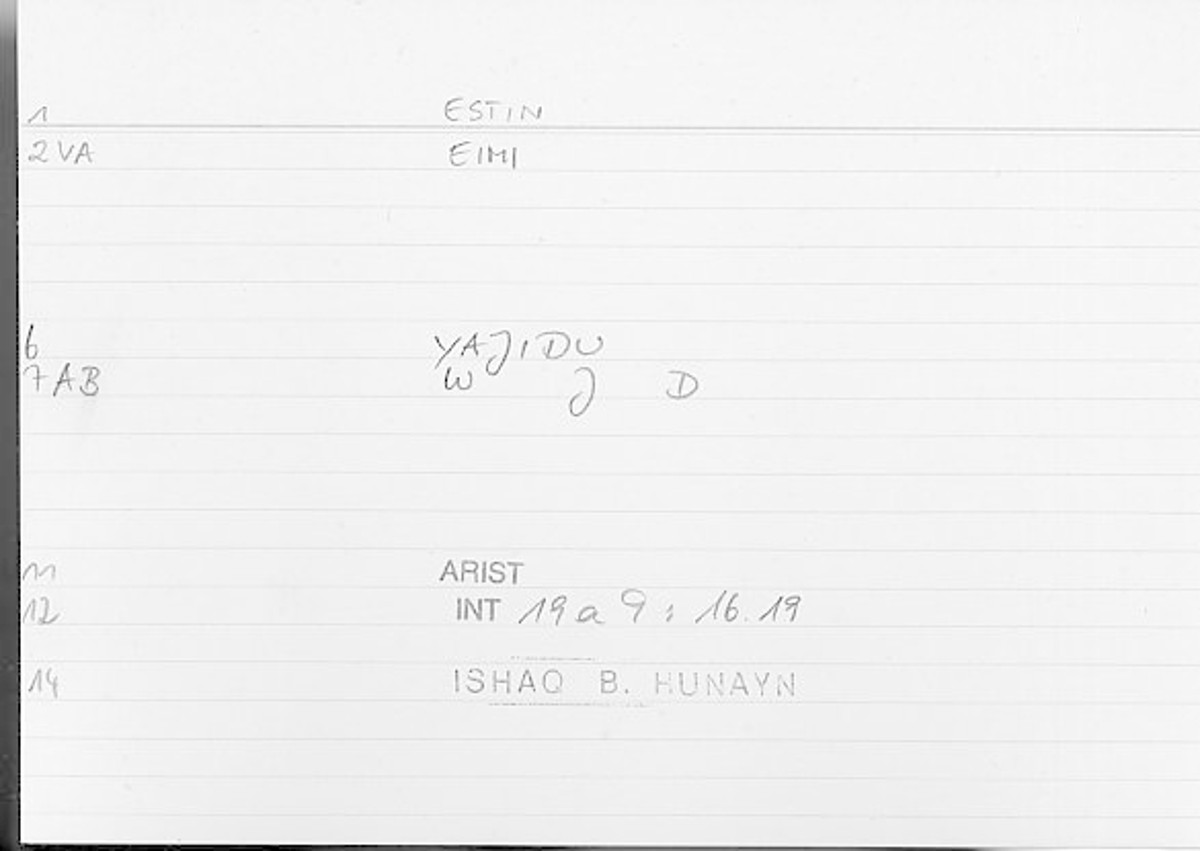 1 ESTIN
2 VA EIMI
6 YAJIDU
7 AB W J D
11 ARIST
12 INT 19 a 9 : 16.19
14 ISHAQ B. HUNAYN